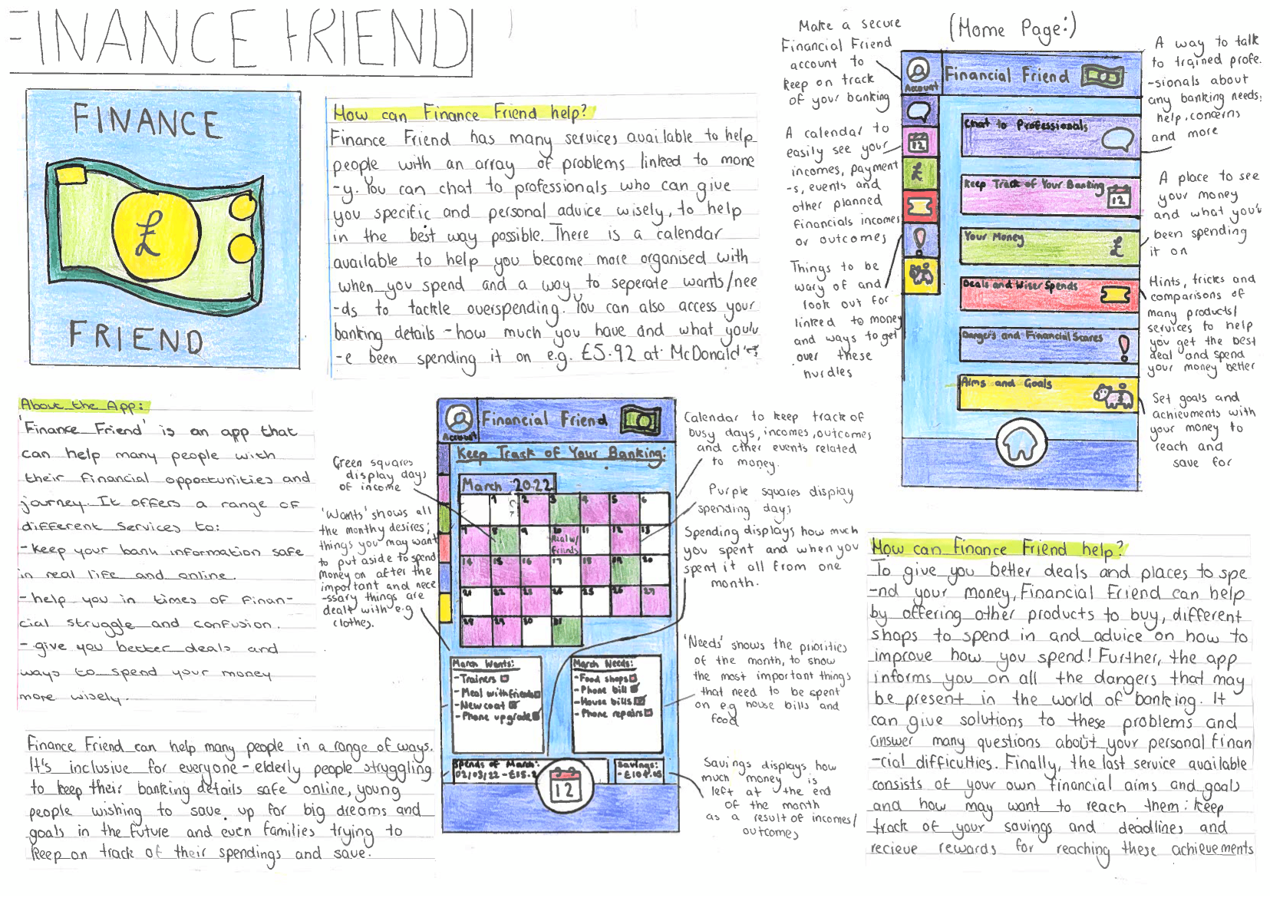 FINANCE FRIEND
FINANCE
£
FRIEND
How can Finance Friend help?
Finance Friend has many services available to help
people with an array of problems linked to mone
-y. You can chat to professionals who can give
you specific and personal advice wisely, to help
in the best way possible. There is a calendar
available to help you become more organised with
when you spend and a way to seperate wants/nee
-ds to tackle overspending. You can also access your
banking details - how much you have and what youv
-e been spending it on e.g. £5.92 at McDonald's
Make a secure
Financial Friend
account to
keep on track
of your banking
A calendar to
easily see your
incomes, payment
-s, events and
other planned
financials incomes
or outcomes
Things to be
wary of and
look out for
linked to money
and ways to get
over these
hurdles
(Home Page:)
Account
Financial Friend
12
£
!
Chat to Professionals
Keep Track of Your Banking
12
Your Money
£
Deals and Wiser Spends
Dangers and Financial Scares
!
Aims and Goals
A way to talk
to trained profe.
-sionals about
any banking needs:
help, concerns
and more
A place to see
your money
and what you've
been spending
it on
Hints, tricks and
comparisons of
many products/
services to help
you get the best
deal and spend
your money better
Set goals and
achieuments with
your money to
reach and
save for
About the App:
'Finance Friend' is an app that
can help many people with
their financial opportunities and
journey. It offers a range of
different services to:
- keep your bank information safe
in real life and online.
- help you in times of finan-
cial struggle and confusion.
- give you better deals and
ways to spend your money
more wisely.
Finance Friend can help many people in a range of ways.
It's inclusive for everyone - elderly people struggling
to keep their banking details safe online, young
people wishing to save up for big dreams and
goals in the future and even families trying to
keep on track of their spendings and save.
Green squares
display days
of income
'Wants' shows all
the monthy desires;
things you may want
to put aside to spend
money on after the
important and nece
-ssary things are
dealt with e.g
clothes.
Account
Financial Friend
Keep Track of Your Banking:
March 2022
1 2 3 4 5 6
7 8 9 10 11 12 13
Meal w/ friends
14 15 16 17 18 19 20
21 22 23 24 25 26 27
28 29 30 31
March Wants:
- Trainers
- Meal with friends
- New coat
- Phone upgrade
March Needs:
- Food shops
- Phone bill
- House bills
- Phone repairs
Spends of March:
02/03/22 - £15.2
12
Savings:
Calendar to keep track of
busy days, incomes, outcomes
and other events related
to money.
Purple squares display
spending days
Spending displays how much
you spent and when you
spent it all from one
month.
'Needs' shows the priorities
of the month, to show
the most important things
that need to be spent
on e.g house bills and
food
Savings displays how
much money is
left at the end
of the month
as a result of incomes/
outcomes
How can Finance Friend help?
To give you better deals and places to spe
-nd your money, Financial Friend can help
by offering other products to buy, different
shops to spend in and advice on how to
improve how you spend! Further, the app
informs you on all the dangers that may
be present in the world of banking. It
can give solutions to these problems and
answer many questions about your personal finan
-cial difficulties. Finally, the last service available
consists of your own financial aims and goals
and how may want to reach them: keep
track of your savings and deadlines and
recieve rewards for reaching these achievements